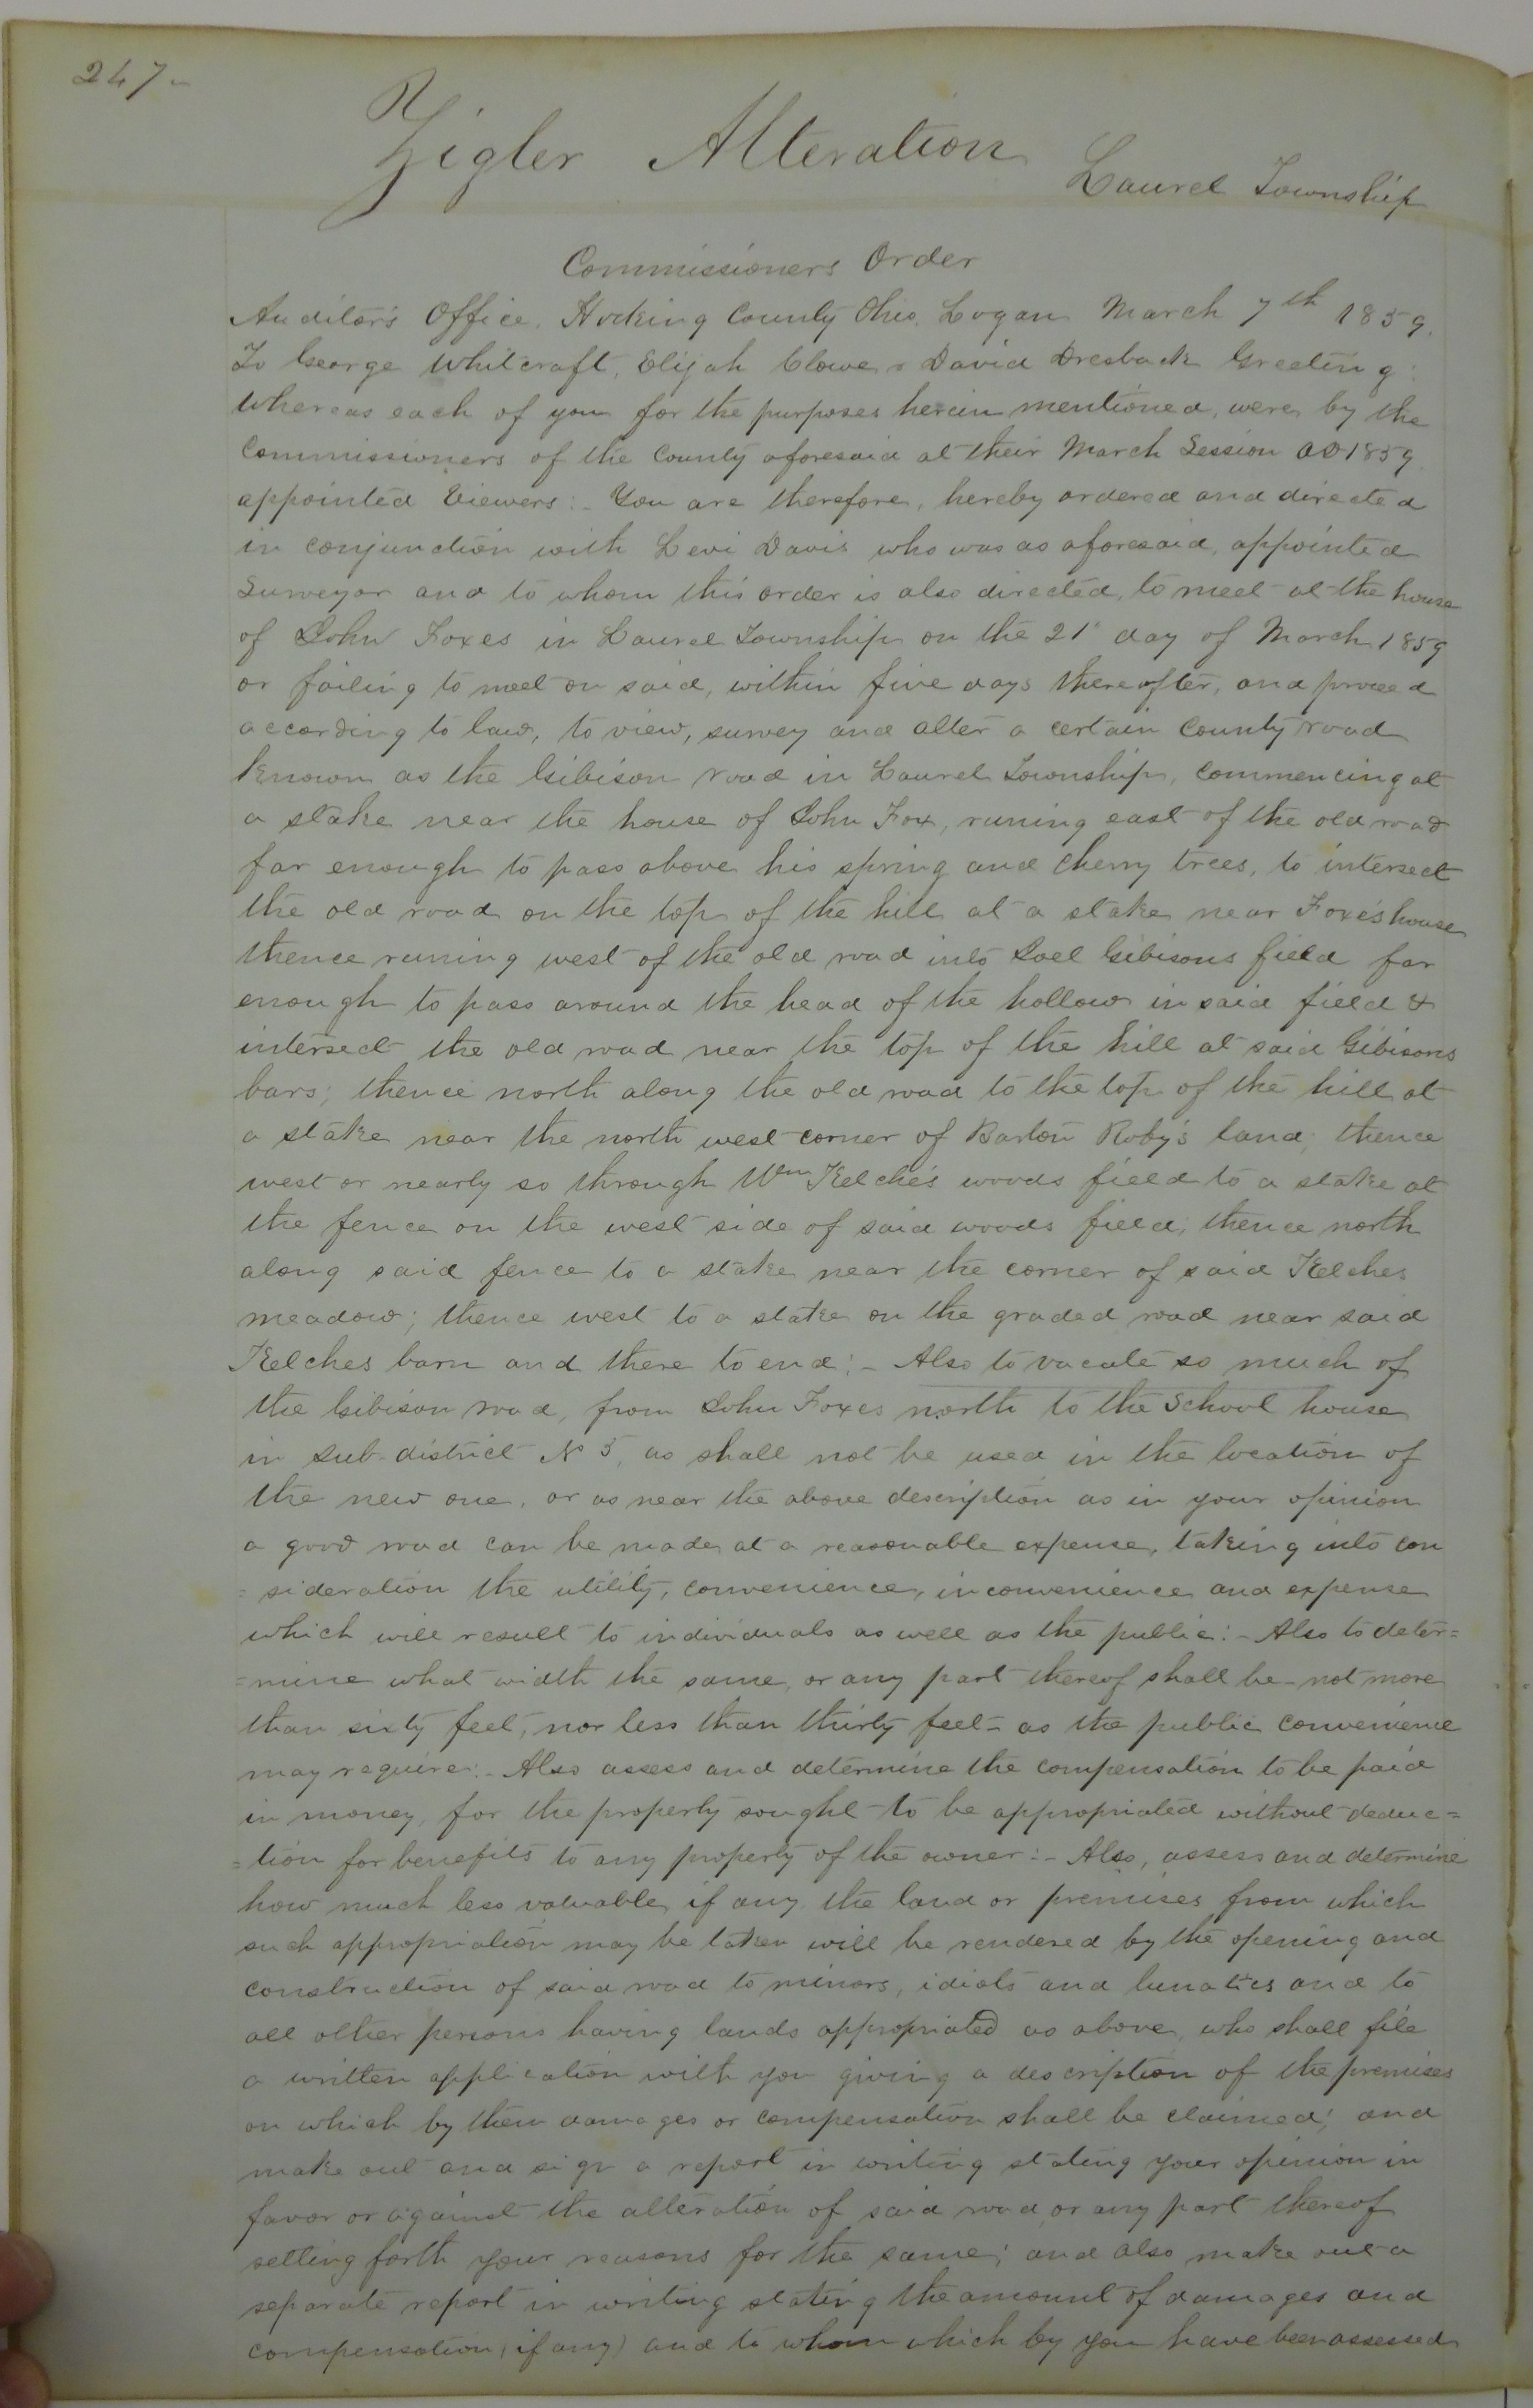 247
Zigler Alteration
Laurel Township
Commissioners Order
Auditor's Office, Hocking County Ohio, Logan March 7th 1859.
To George Whitcraft, Elijah Clowe & David Dresback Greeting:
Whereas each of you for the purposes herein mentioned, were by the
Commissioners of the County aforesaid at their March Session AD 1859
appointed Viewers:- You are therefore, hereby ordered and directed
in conjunction with Levi Davis who was as aforesaid, appointed
Surveyor and to whom this order is also directed, to meet at the house
of John Foxes in Laurel Township on the 21st day of March 1859
or failing to meet on said, within five days thereafter, and proceed
according to law, to view, survey and alter a certain County road
Known as the Gibison road in Laurel Township, commencing at
a stake near the house of John Fox, runing east of the old road
far enough to pass above his spring and cherry trees, to intersect
the old road on the top of the hill at a stake near Foxes house
thence runing west of the old road into Joel Gibisons field far
enough to pass around the head of the hollow in said field &
intersect the old road near the top of the hill at said Gibisons
bars; thence north along the old road to the top of the hill at
a stake near the north west corner of Barton Roby's land; thence
west or nearly so through Wm Kelche's woods field to a stake at
the fence on the west side of said woods field; thence north
along said fence to a stake near the corner of said Kelches
meadow; thence west to a stake on the graded road near said
Kelches barn and there to end:- Also to vacate so much of
the Gibison road, from John Foxes north to the School house
in sub-district No 5, as shall not be used in the location of
the new one, or as near the above description as in your opinion
a good road can be made at a reasonable expense, taking into con
=sideration the utility, convenience, inconvenience and expense
which will result to individuals as well as the public:- Also to deter=
=mine what width the same, or any part thereof shall be - not more
than sixty feet, nor less than thirty feet - as the public convenience
may require:- Also assess and determine the compensation to be paid
in money, for the property sought to be appropriated without deduc=
=tion for benefits to any property of the owner:- Also, assess and determine
how much less valuable, if any the land or premises from which
such appropriation may be taken will be rendered by the opening and
construction of said road to minors, idiots and lunatics and to
all other persons having lands appropriated as above, who shall file
a written application with you giving a description of the premises
on which by them damages or compensation shall be claimed; and
make out and sign a report in writing stating your opinion in
favor or against the alteration of said road, or any part thereof
setting forth your reasons for the same; and also make out a
separate report in writing stating the amount of damages and
compensation (if any) and to whom which by you have been assessed